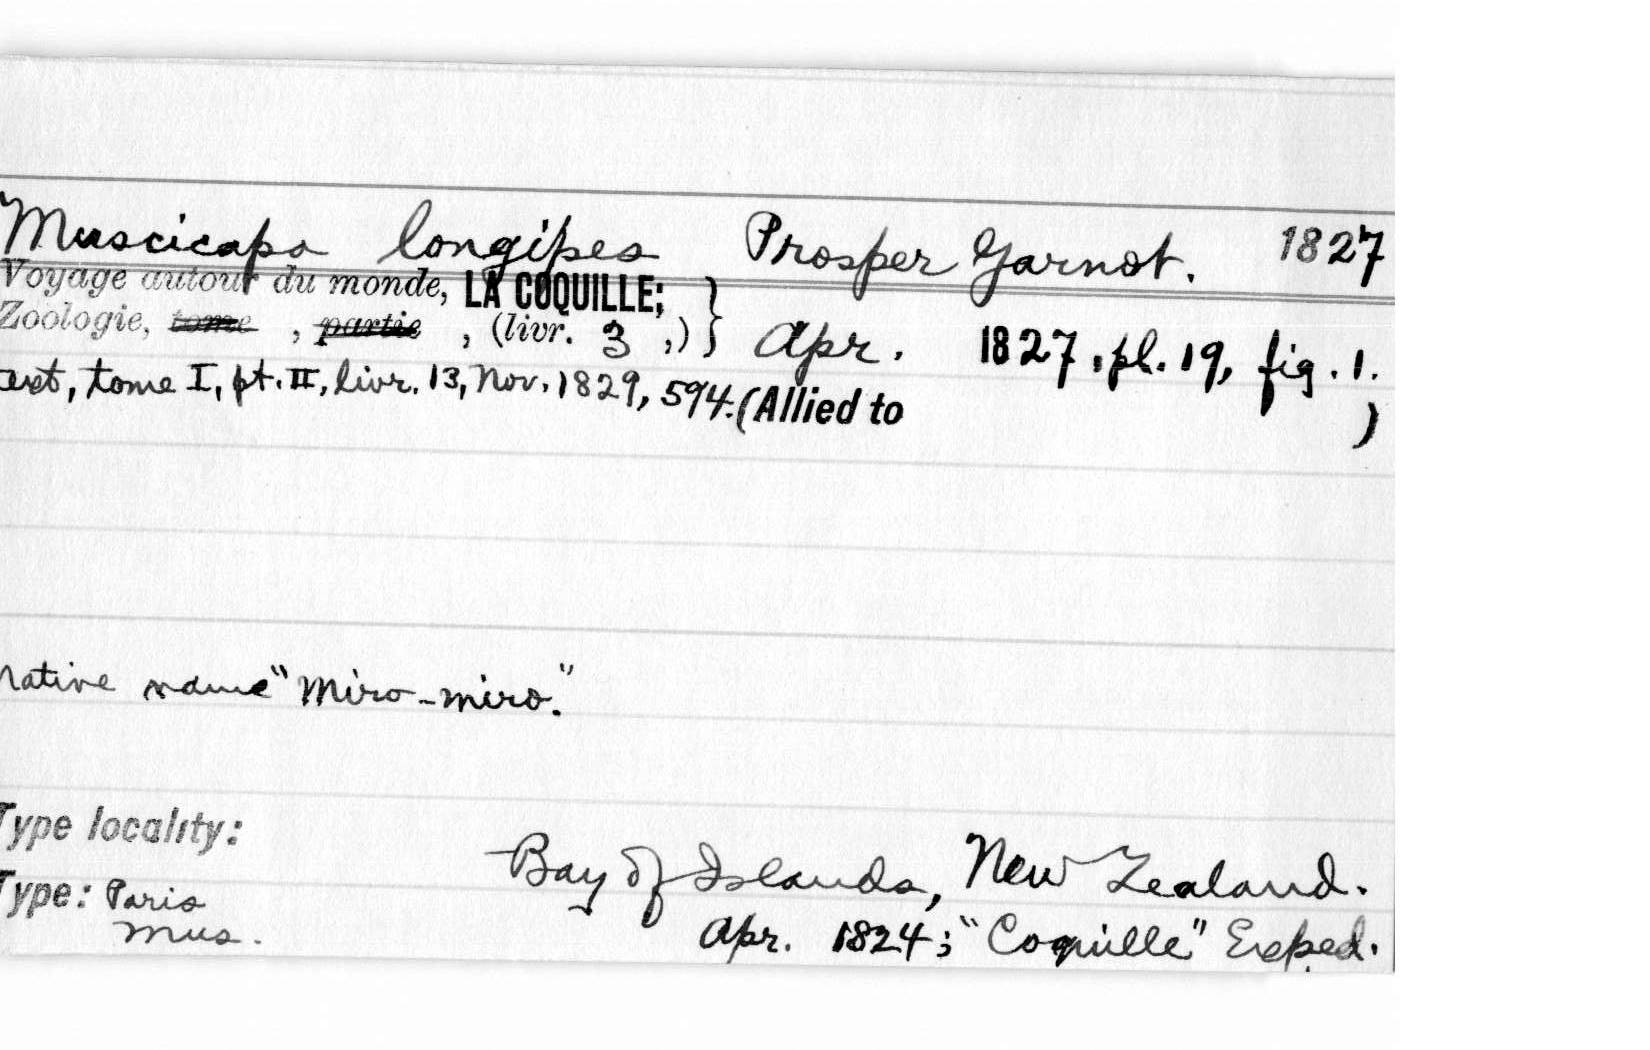 Muscicapa longipes Prosper Garnot. 1827
Voyage autour du monde, LA COQUILLE; }
Zoologie, tome , partie , (livr. 3 ,) Apr. 1827, pl. 19, fig. 1.
ext, tome I, pt. II, livr. 13, Nov. 1829, 594. (Allied to )
native name "Miro-miro."
Type locality:
Bay of Islands, New Zealand.
Type: Paris
Mus.
Apr. 1824; "Coquille" Exped.